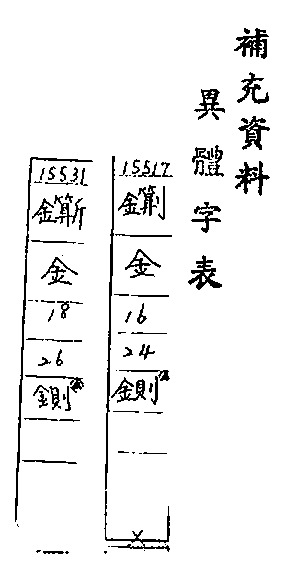 補充資料
異體字表
15517
金
16
24
鍘
15531
金
18
26
鍘